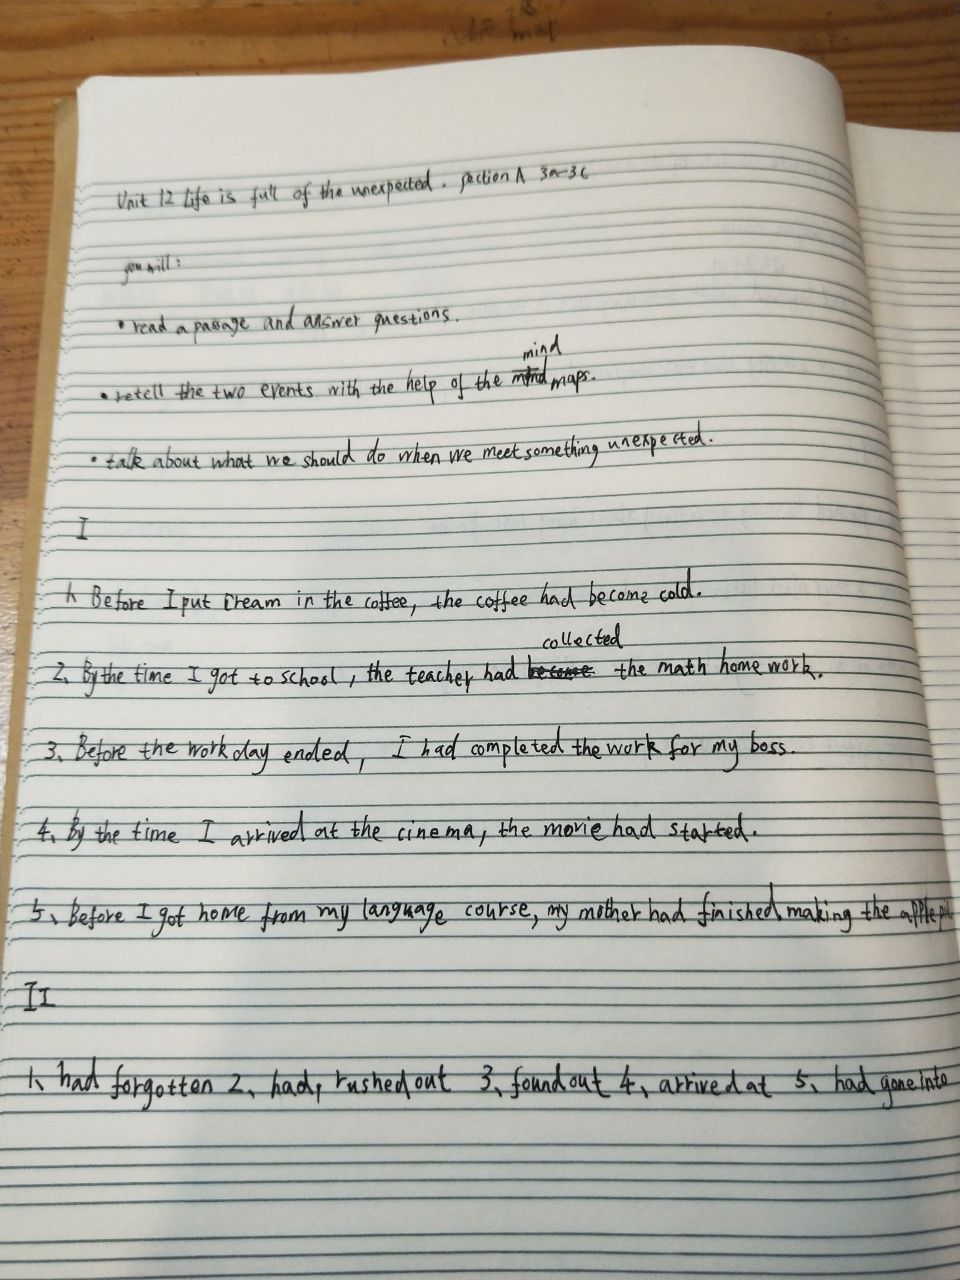 Unit 12 Life is full of the unexpected. Section A 3a-3c
you will:
• read a passage and answer questions.
mind
• retell the two events with the help of the maps.
• talk about what we should do when we meet something unexpected.
I
1. Before I put cream in the coffee, the coffee had become cold.
collected
2、By the time I got to school, the teacher had become the math homework.
3、Before the workday ended, I had completed the work for my boss.
4、By the time I arrived at the cinema, the movie had started.
5、Before I got home from my language course, my mother had finished making the apple
II
1、had forgotten 2、had, rushed out 3、found out 4、arrived at 5、had gone into